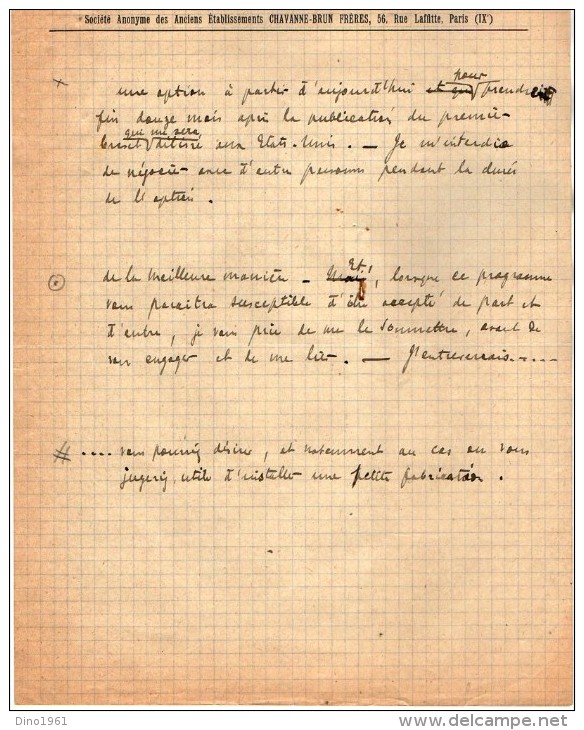 Société Anonyme des Anciens Établissements CHAVANNE-BRUN FRÈRES, 56, Rue Lafitte, Paris (IXe)
pour
x une option à partir d'aujourd'hui et qui prendre
fin douze mois après la publication du premier
qui me sera
brevet délivré aux Etats-Unis. — Je m'interdis
de négocier avec d'autres personnes pendant la durée
de l'option.
Et,
de la meilleure manière - Mais, lorsque ce programme
vous paraitra susceptible d'être accepté de part et
d'autre, je vous prie de me le soumettre, avant de
vous engager et de me lier. — J'entreverrais.....
# .... vous pourriez désirer, et notamment au cas ou vous
jugeriez utile d'installer une petite fabrication.
Dino1961
www.delcampe.net